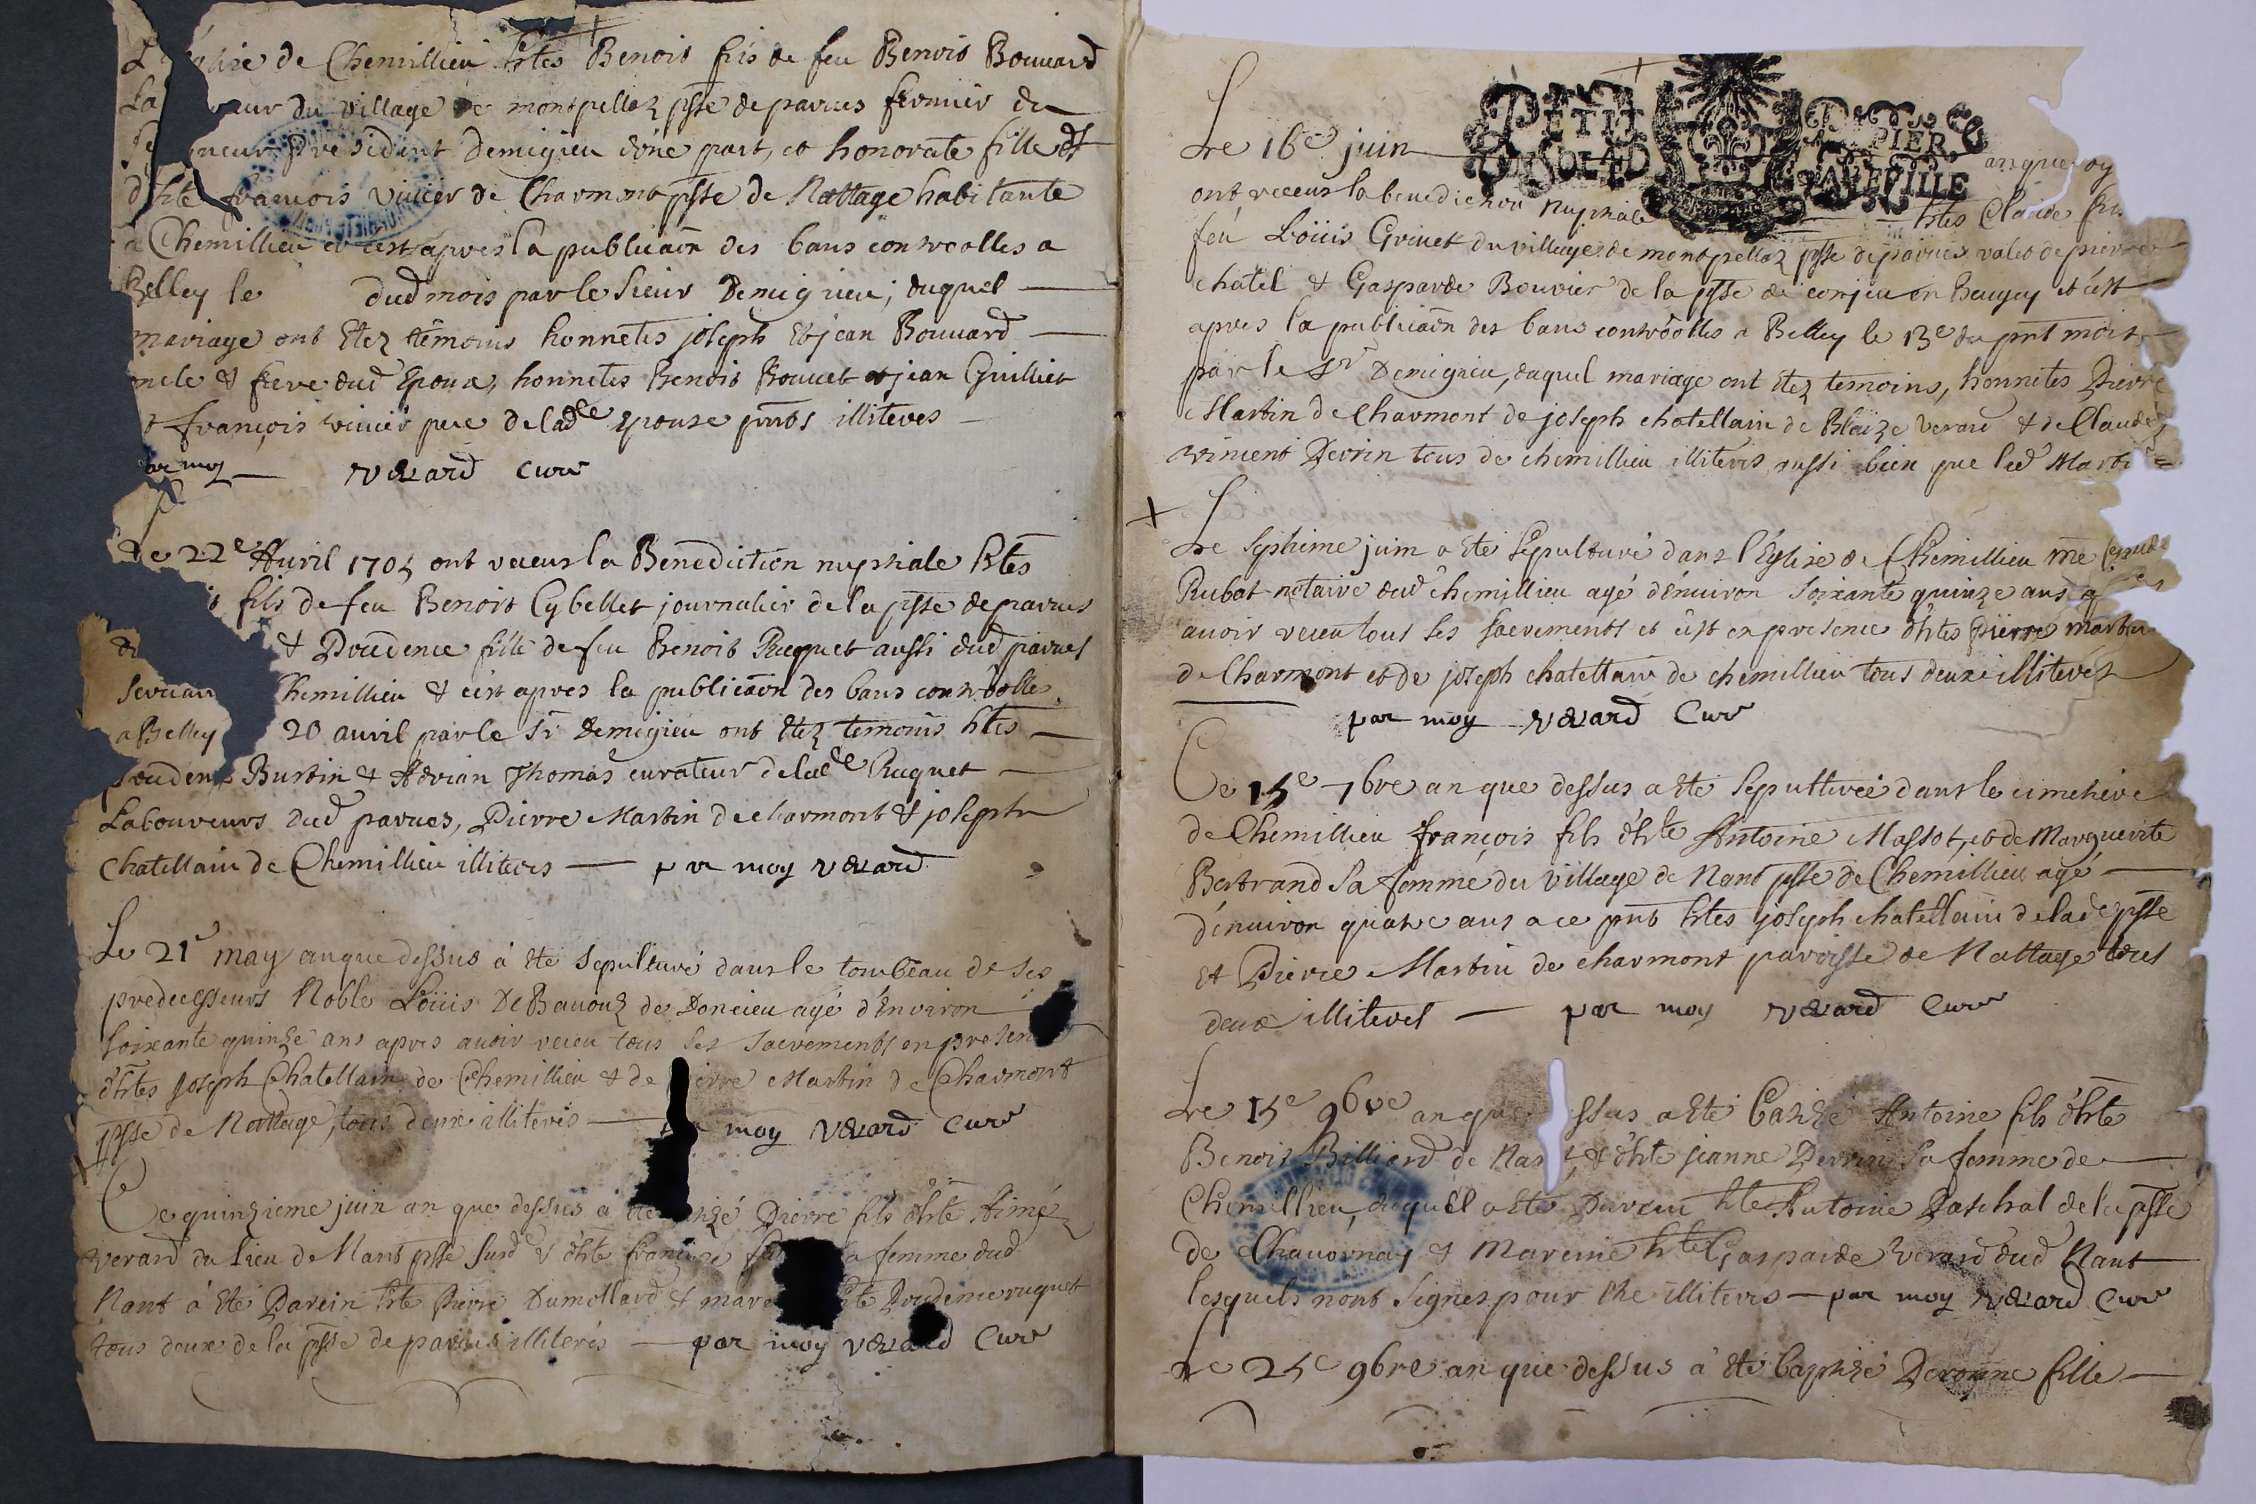 L'Eglise de Chemillieu htes Benois fils de feu Benois Bouuard
La eur du village de montpellaz psse de parues fermier du
neur President Demigieu d'une part, et honorate fille d'
d'hte francois vuicer de Charmont psse de Nattage habitante
a Chemillieu et c'est apres la publicaon des bans controolles a
Belley le dud mois par le Sieur Demigieu; duquel
mariage ont Etez témoins honnetes joseph Et jean Bouuard
ncle & frere dud Epoux, honnetes Benois Bouuet et jean Guilliet
& françois vuicer pere de lade Epouse pnts illiteres
par moy verard Curé
Le 22e Auril 1705 ont receus la Benediction nuptiale htes
fils de feu Benois Cybellet journalier de la psse de parues
& Prudence fille de feu Benois Ruquet aussi dud parues
seruan Chemillieu & c'est apres la publicaon des bans controolles
a Belley 20 auril par le Sr Demigieu ont Etez temoins htes
prudent Burtin & Adrian Thomas curateur de lade Ruquet
Laboureurs dud parues, Pierre Martin de charmont & joseph
Chatellain de Chemillieu illiteres par moy verard
Le 21e may an que dessus à été Sepulturé dans le tombeau de Ses
predecesseurs Noble Loüis De Bauouz de Doncieu agé d'Environ
soixante quinze ans apres auoir receu tous Ses Sacrements en presen
d'htes joseph Chatellain de Chemillieu & de ierre Martin de Charmont
psse de Nattage, tous deux illiteres moy verard Curé
Ce quinzieme juin an que dessus à été Pierre fils d'hte Aimé
verard du Lieu de Nant psse Surde & d'hte françoise la femme dud
Nant à été Parein hte Pierre Dumollard & mare hte Prudence ruquet
tous deux de la psse de parues illiterés par moy verard Curé
Le 16e juin PETIT PAPIER an que
ont receus la benediction Nuptiale htes Claude fils
feu Loüis Griuet du village de montpellaz psse de parues valet de pierre
chatel & Gasparde Bouvier de la psse de conjeu en Beugey et c'est
apres la publicaon des bans controolles a Belley le 13e du pnt mois
par le Sr Demigieu, duquel mariage ont étez temoins, honnetes Pierre
Martin de Charmont de joseph chatellain de Blaize verard & de Claude
vincent Perrin tous de chemillieu illiteres aussi bien que led Martin
Le septiéme juin a été Sépulturé dans l'Église de Chemillieu me
Rubat notaire dud chemillieu agé d'enuiron soixante quinze ans
auoir receu tous ses sacrements et c'est en presence d'htes pierre martin
de Charmont et de joseph chatellain de chemillieu tous deux illiteres
par moy verard Curé
Ce 15e 7bre an que dessus a été Sepulturée dans le cimetiere
de Chemillieu françois fils d'hte Antoine Massot, et de Marguerite
Bertrand Sa femme du village de Nant psse de Chemillieu agé
d'enuiron quatre ans a ce pnts htes joseph chatellain de lade psse
Et Pierre Martin de charmont paroisse de Nattage tous
deux illiteres par moy verard Curé
Le 15e 9bre an que ssus a été Antoine fils d'hte
Benois Billiard de Nant & d'hte jeanne Perrin Sa femme de
Chemillieu, duquel a été Parein hte Antoine Paschal de la psse
de Chauornay & Mareine hte Gasparde verard dud Nant
lesquels n'ont Signes pour être illiteres par moy verard Curé
Le 25e 9bre an que dessus à été Baptizé Peronne fille